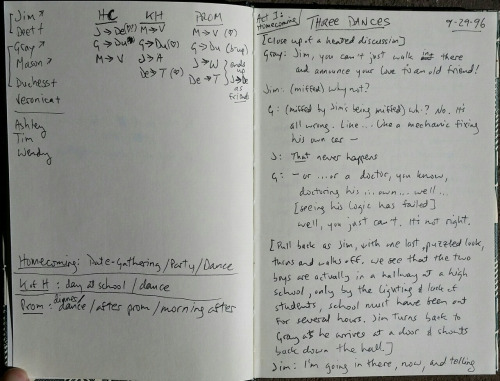 Jim ↗
Dee ↑
Gray ↗
Mason ↗
Duchess ↑
Veronica ↑
Ashley
Tim
Wendy
HC
J → De (♡)
G → Du
M → V
KH
M → V
G → Du (♡)
J → A
De → T (♡)
PROM
M → V (♡)
G → Du
J → W
De → T
ends
up
J → De
as
friends
Homecoming: Date-Gathering/Party/Dance
K of H: day at school/dance
dinner/
Prom: dance/after prom/morning after
Act I:
Homecoming
THREE DANCES
7-29-96
[Close up of a heated discussion]
Gray: Jim, you can't just walk in there
and announce your love to an old friend!
Jim: (miffed) Why not?
G: (miffed by Jim's being miffed) Wh-? No. It's
all wrong. Like... Like a mechanic fixing
his own car —
J: That never happens
G: - or ... or a doctor, you know,
doctoring his ... own ... well...
[seeing his logic has failed]
well, you just can't. It's not right.
[Pull back as Jim, with one last, puzzled look,
turns and walks off. We see that the two
boys are actually in a hallway at a high
school, only by the lighting & lack of
students, school must have been out
for several hours. Jim turns back to
Gray as he arrives at a door & shouts
back down the hall.]
Jim: I'm going in there, now, and telling